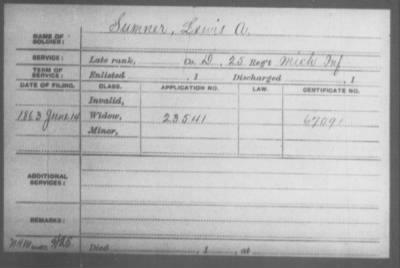 NAME OF SOLDIER: Sumner, Lewis A.
SERVICE: Late rank, Co. D, 25 Reg't Mich Inf
TERM OF SERVICE: Enlisted , 1 Discharged , 1
DATE OF FILING. CLASS. APPLICATION NO. LAW. CERTIFICATE NO.
Invalid,
1863 June 14 Widow, 23541 67091
Minor,
ADDITIONAL SERVICES:
REMARKS:
Died , 1 , at